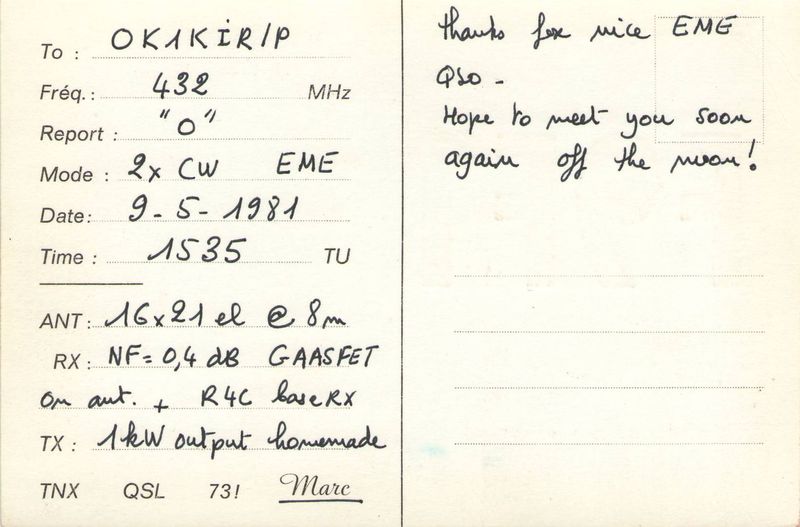 To : OK1KIR/P
Fréq.: 432 MHz
Report : "O"
Mode : 2x CW EME
Date: 9-5-1981
Time : 1535 TU
ANT: 16x21 el @ 8m
RX: NF=0,4 dB GAASFET
on ant. + R4C base RX
TX: 1kW output homemade
TNX QSL 73! Marc
thanks for nice EME
QSO -
Hope to meet you soon
again off the moon!